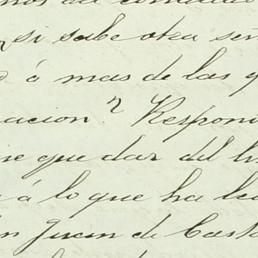 si sabe otra señ
ó mas de las q
uacion? Respon
que dar del
á lo que ha
Juan de Cast